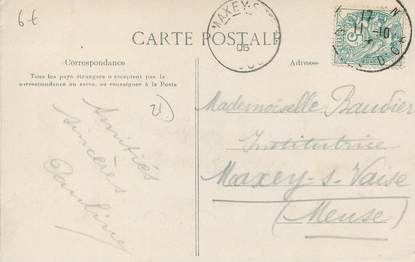 6€
CARTE POSTALE
Correspondance
Adresse
Tous les pays étrangers n'acceptent pas la
correspondance au recto, se renseigner à la Poste
Amitiés
sincères
Pauline
21)
Mademoiselle Baudier
Institutrice
Maxey-s-Vaise
(Meuse)
MAXEY-S
06
17
11-10